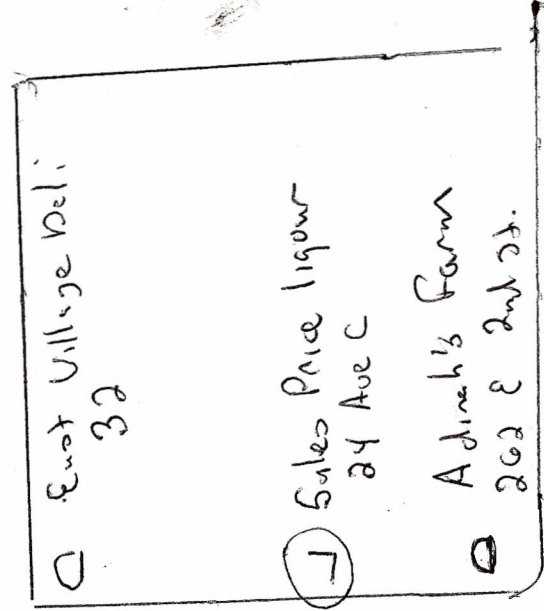 D East Village Deli
32
L Sales Price liqour
24 Ave C
D Adinah's Farm
262 E 2nd st.